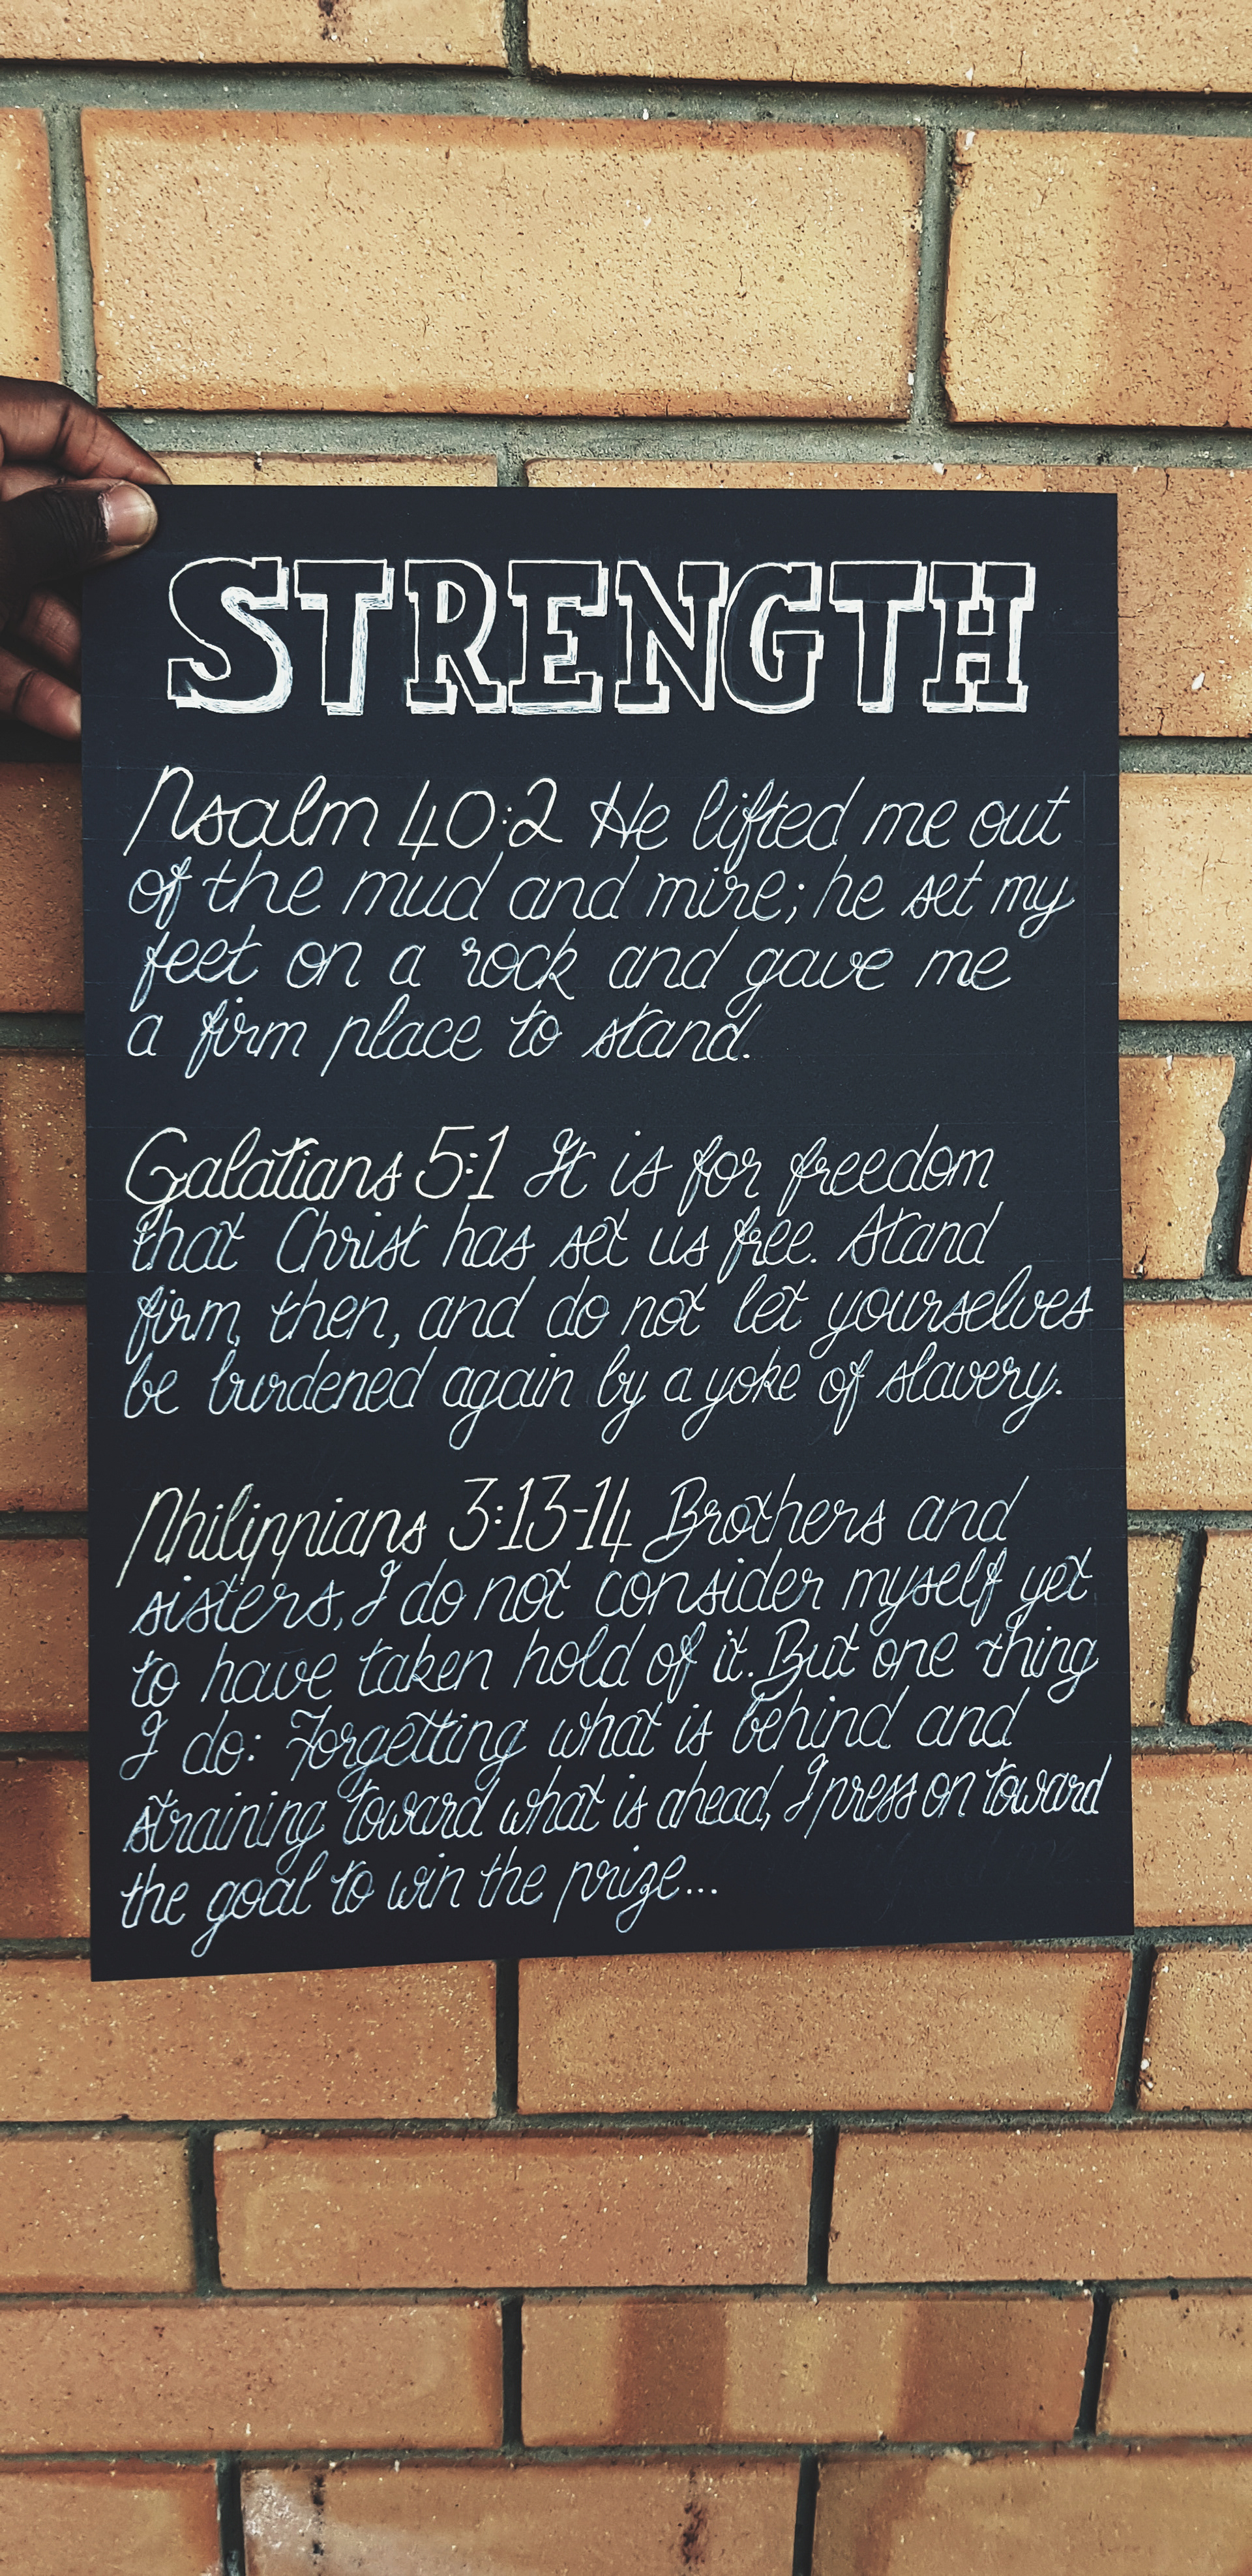 STRENGTH
Psalm 40:2 He lifted me out
of the mud and mire; he set my
feet on a rock and gave me
a firm place to stand.
Galatians 5:1 It is for freedom
that Christ has set us free. Stand
firm, then, and do not let yourselves
be burdened again by a yoke of slavery.
Philippians 3:13-14 Brothers and
sisters, I do not consider myself yet
to have taken hold of it. But one thing
I do: Forgetting what is behind and
straining toward what is ahead, I press on toward
the goal to win the prize...